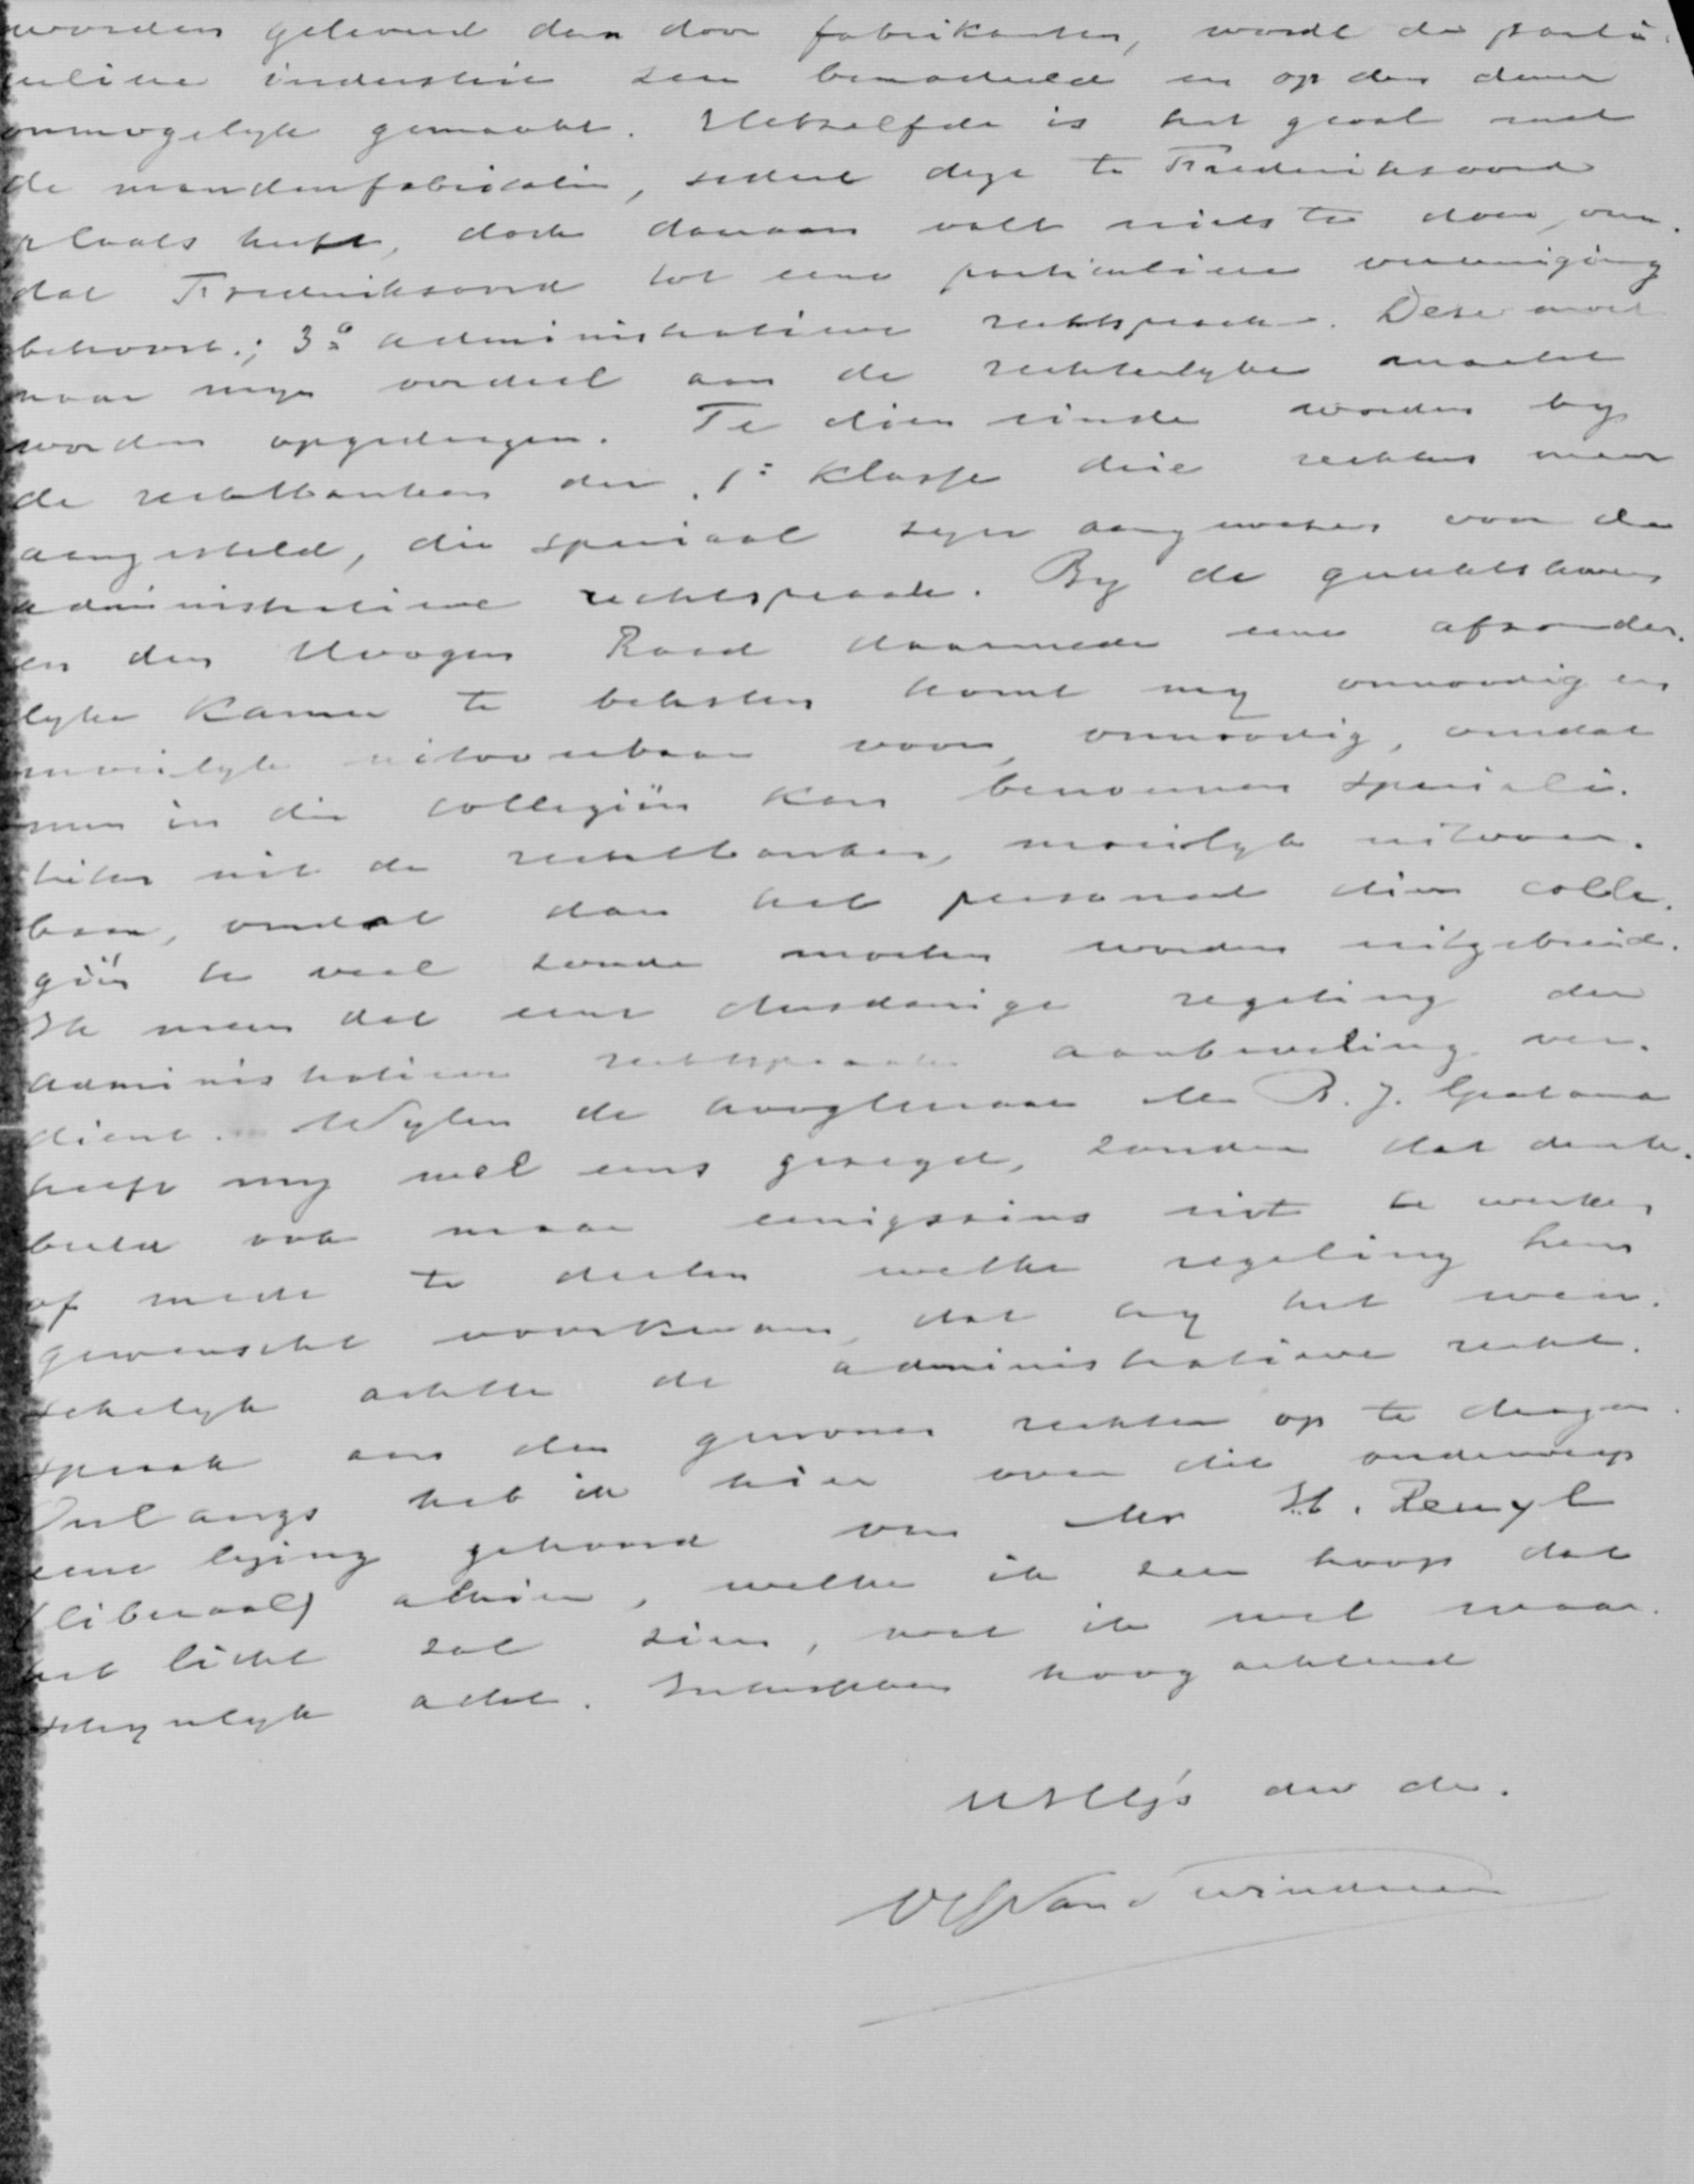 worden geleverd dan door fabrikanten, wordt de parti-
culiere industrie zeer benadeeld en op den duur
onmogelyk gemaakt. Hetzelfde is het geval met
de mandenfabricatie, sedert deze te Frederiksoord
plaats heeft, doch daaraan valt niets te doen, om-
dat Frederiksoord tot eene particuliere vereeniging
behoort.; 3o administratieve rechtspraak. Deze moet
naar myn oordeel aan de rechterlyke macht
worden opgedragen. Te dien einde worden by
de rechtbanken der 1e klasse drie rechters meer
aangesteld, die speciaal zyn aangewezen voor de
administratieve rechtspraak. By de gerechtshoven
en den Hoogen Raad daarmede eene afzonder-
lyke Kamer te belasten komt my onnoodig en
moeilyk uitvoerbaar voor, onnoodig, omdat
men in die collegiën kan benoemen speciali-
teiten uit de rechtbanken, moeilyk uitvoer-
baar, omdat dan het personeel dier colle-
giën te veel zoude moeten worden uitgebreid.
Ik meen dat eene dusdanige regeling der
administratieve rechtspraak aanbeveling ver-
dient. Wylen de hoogleeraar Mr B. J. Gratama
heeft my wel eens gezegd, zonder dat denk-
beeld ook maar eenigszins uit te werken
of mede te deelen welke regeling hem
gewenscht voorkwam, dat hy het wen-
schelyk achtte de administratieve recht-
spraak aan den gewonen rechter op te dragen.
Onlangs heb ik hier over dit onderwerp
eene lezing gehoord van Mr H.
(liberaal) alhier, welke ik zeer hoop dat
het licht zal zien, wat ik wel waar-
schynlyk acht. Intusschen hoogachtend
UHEG's dw dr.